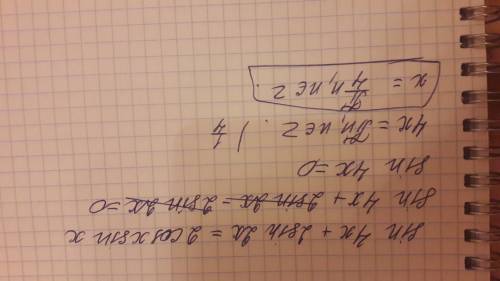 sin 4x + 2sin 2x = 2cosxsin x
sin 4x + 2sin 2x = 2sin 2x = 0
sin 4x = 0
4x = πn, n∈z. | 1/4
x = π/4 n, n∈z.